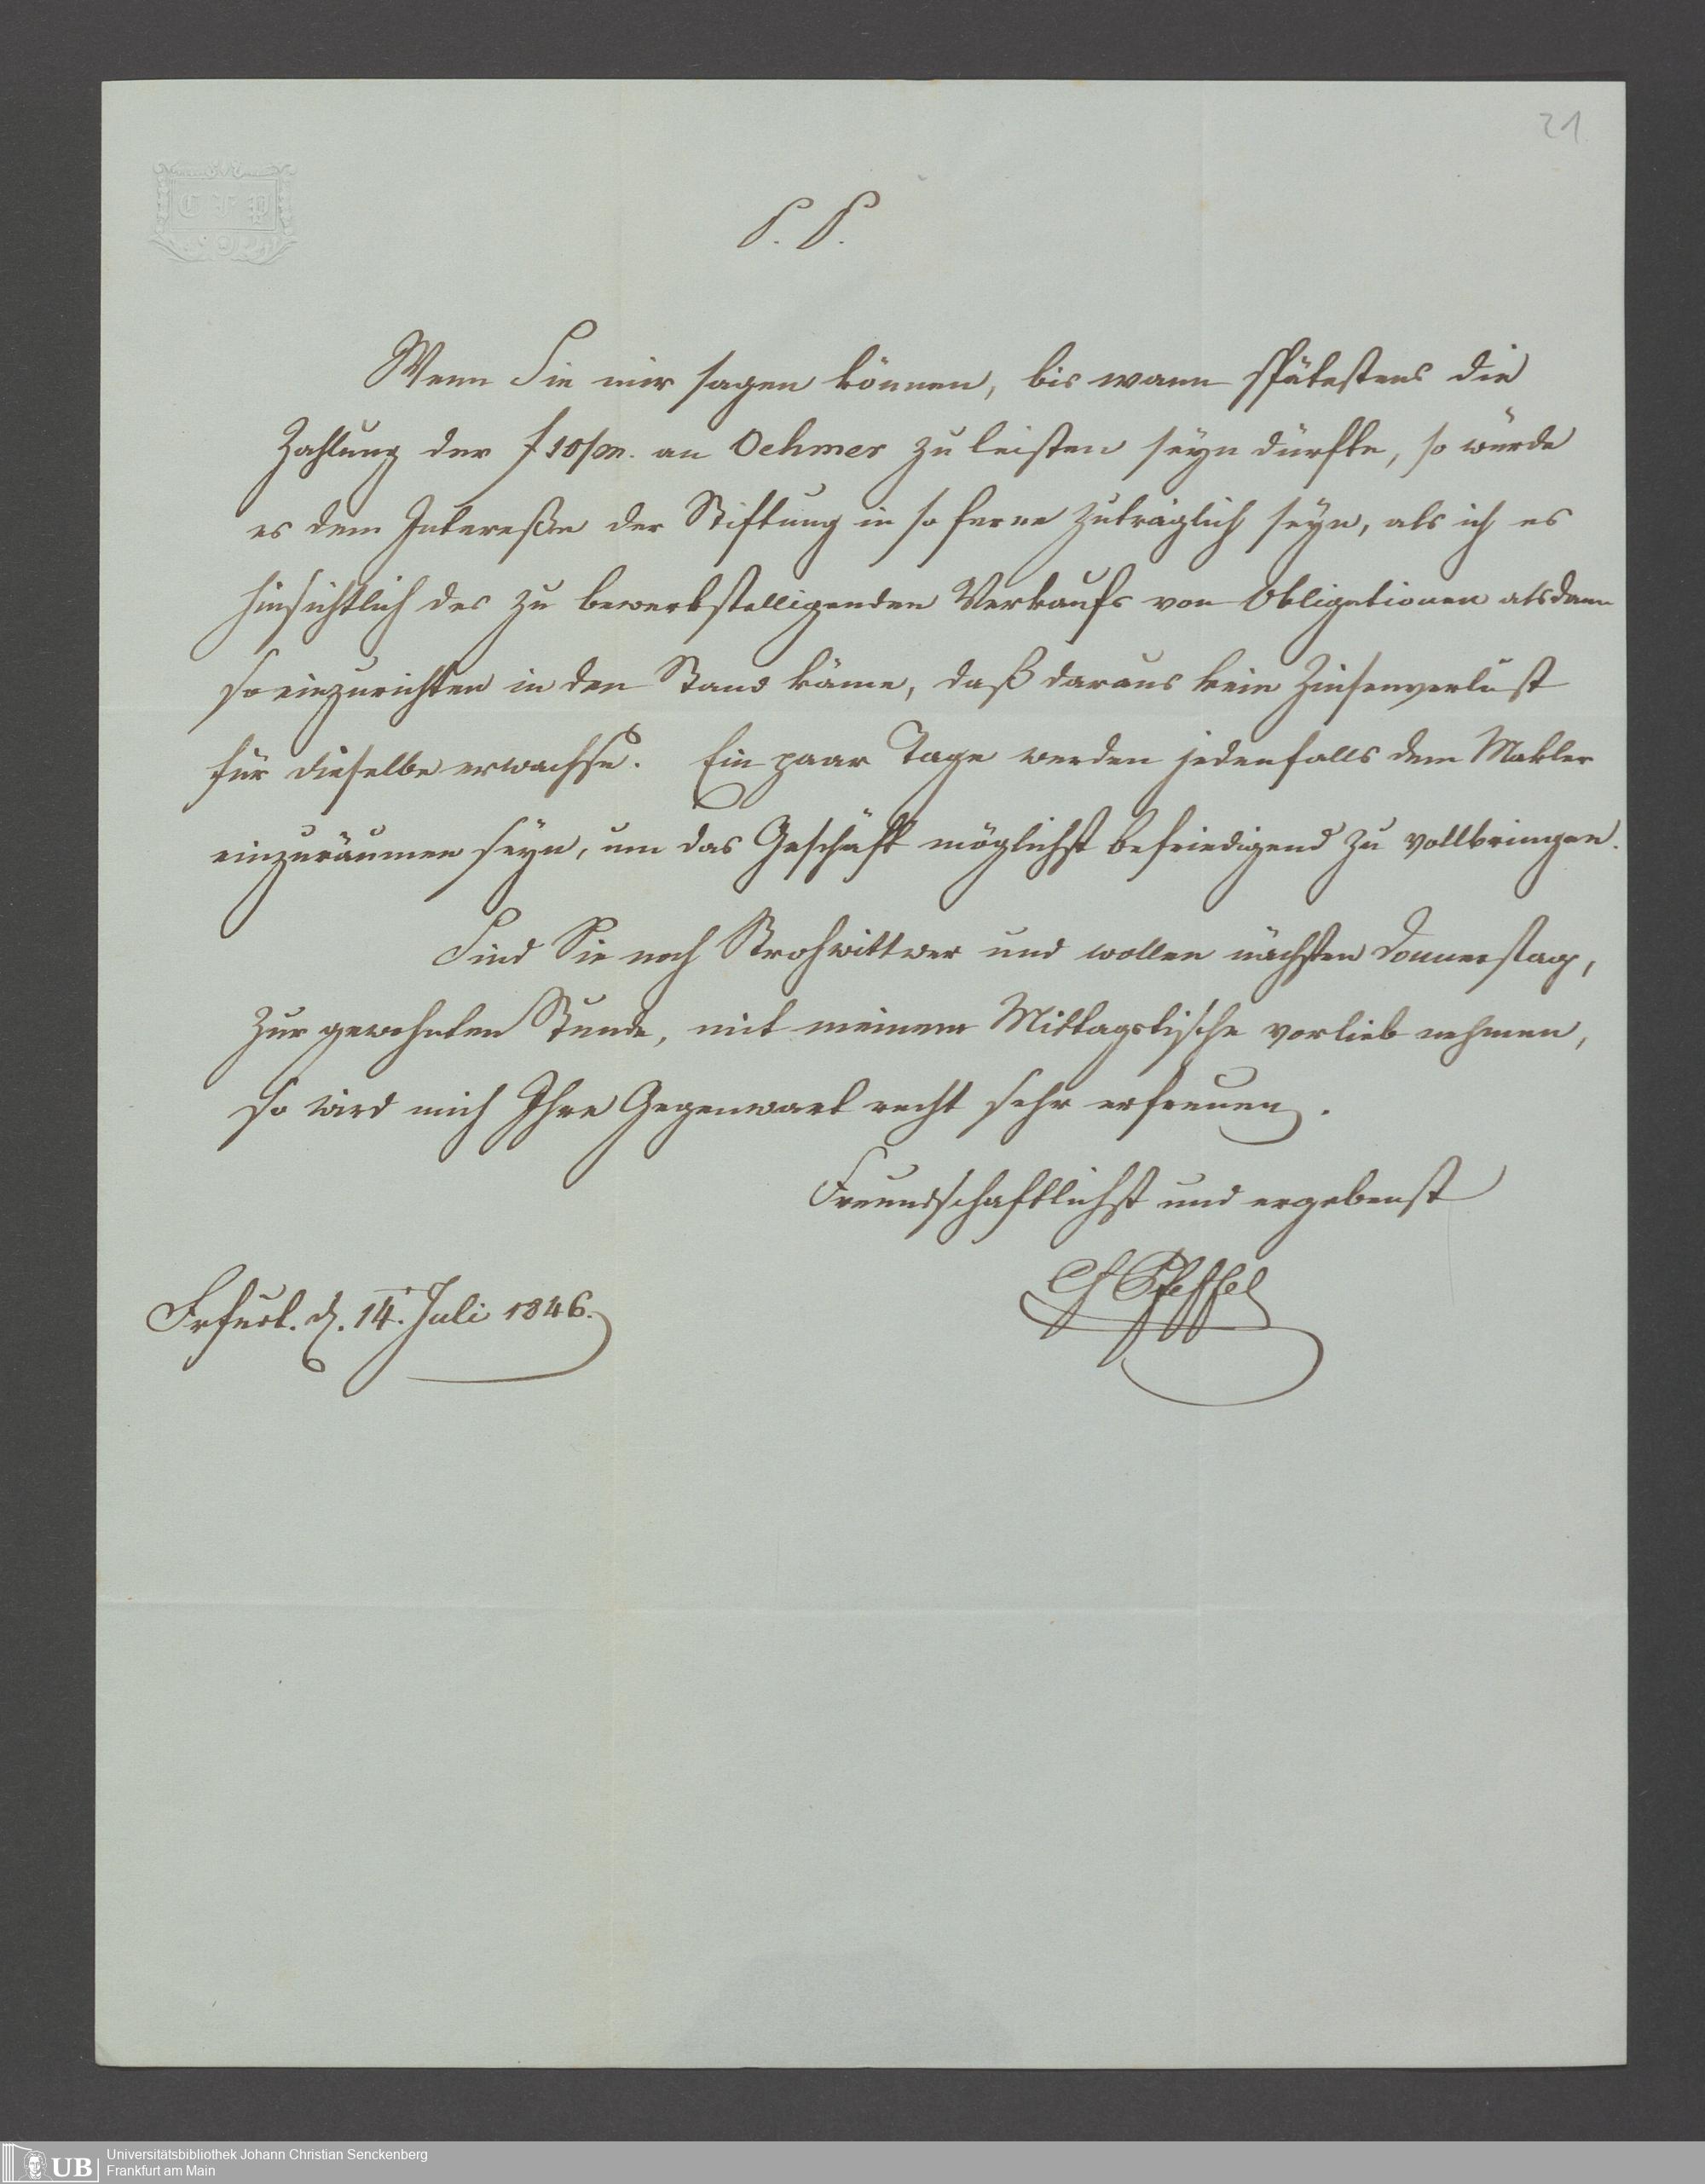 21
C F P
S. P.
Wenn Sie mir sagen können, bis wann spätestens die
Zahlung der f 10/m. an Oehmer zu leisten seyn dürfte, so würde
es dem Intereße der Stiftung in so ferne zuträglich seyn, als ich es
hinsichtlich des zu bewerkstelligenden Verkaufs von Obligationen alsdann
so einzurichten in den Stand käme, daß daraus kein Zinsenverlust
für dieselbe erwachse. Ein paar Tage werden jedenfalls dem Makler
einzuräumen seyn, um das Geschäft möglichst befriedigend zu vollbringen.
Sind Sie noch Strohwittwer und wollen nächsten Donnerstag,
zur gewohnten Stunde, mit meinem Mittagstische vorlieb nehmen,
so wird mich Ihre Gegenwart recht sehr erfreuen.
Freundschaftlichst und ergebenst
CF Pfeffel
Frfurt. d. 14. Juli 1846.
UB Universitätsbibliothek Johann Christian Senckenberg
Frankfurt am Main